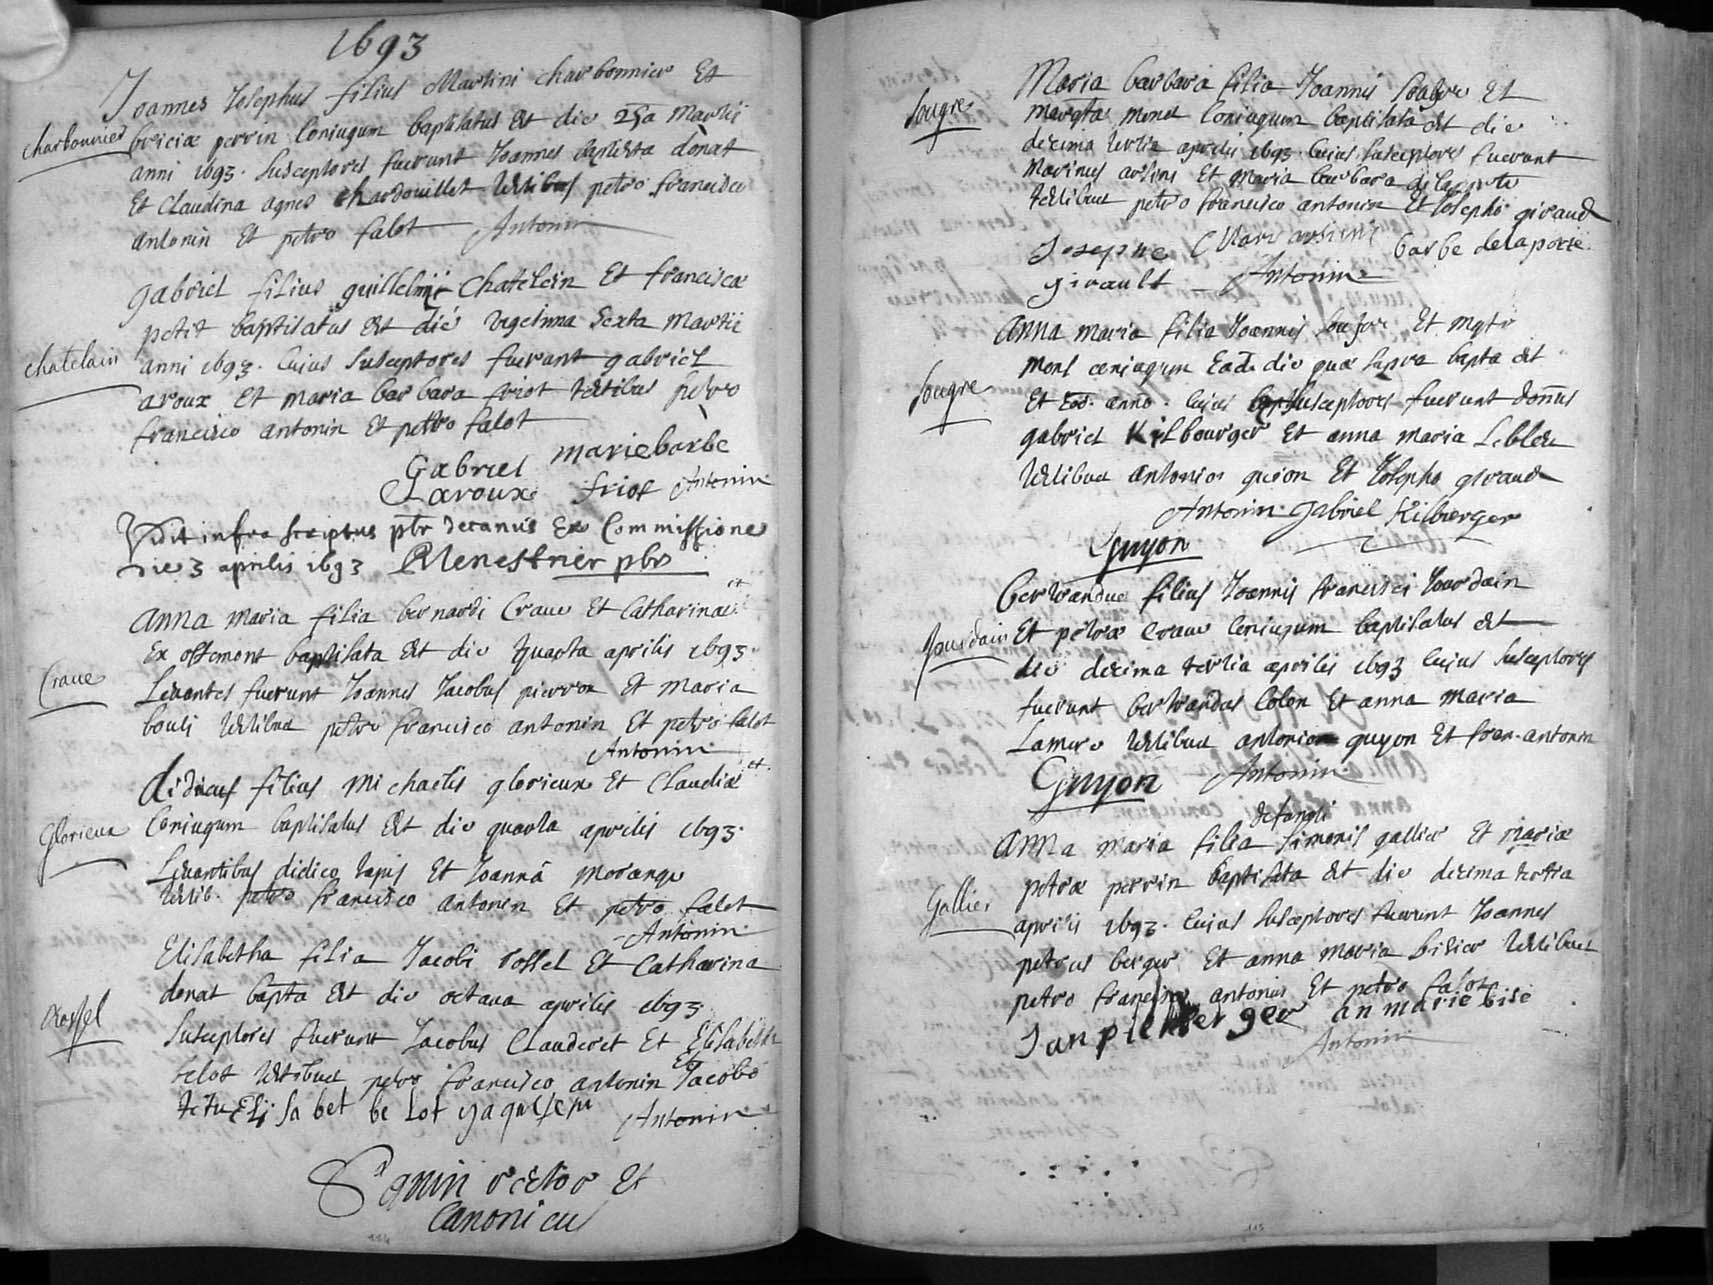 1693
Joannes Josephus filius Martini charbonnier Et
charbonnier
briciæ perrin Coniugum baptisatus est die 25a Martii
anni 1693. Susceptores fuerunt Joannes baptista donat
Et Claudina agnes chardouillet testibus petro francisco
antonin Et petro falot Antonin
gabriel filius guillelmi Chatelein Et franciscæ
petit baptisatus est die vigesima sexta Martii
chatelain
anni 1693. Cuius Susceptores fuerunt gabriel
aroux Et maria barbara friot testibus petro
francisco antonin Et petro falot
Gabriel mariebarbe
Laroux friot Antonin
Vidit infra scriptus pbr decanus Ex Commissione
die 3 aprilis 1693 Menestrier pbr
anna maria filia bernardi Crave Et Catharinæ
Ex offemont baptisata est die quarta aprilis 1693.
Crave
Levantes fuerunt Joannes Jacobus pierron Et maria
bouli testibus petro francisco antonin Et petro falot
Antonin
didacus filius Michaelis glorieux Et Claudiæ
Glorieux
Coniugum baptisatus est die quarta aprilis 1693.
Levantibus didico Et Joannâ morange
testib. petro francisco antonin Et petro falot
Antonin
Elisabetha filia Jacobi rossel Et Catharina
donat bapta est die octava aprilis 1693
Rossel
Susceptores fuerunt Jacobus Clauderet Et Elisabetha
belot testibus petro francisco antonin Et Jacobo
tetu Eli sa bet be Lot Antonin
Sgnin rector Et
Canonicus
114
Maria barbara filia Joannis Sougre Et
Sougre
margta monet Coniugum baptisata est die
decima tertia aprilis 1693. Cuius Susceptores fuerunt
Marinus arsens Et Maria barbara delaporte
testibus petro francisco antonin Et Josepho giraud
Josephe Barbe delaporte
girault Antonin
anna maria filia Joannis Et mgte
mons coniugum Ead. die quæ supra bapta est
Sougre
Et Eod. anno. Cuius Susceptores fuerunt donnus
gabriel Kilbourger Et anna maria Lebleu
testibus antonio guion Et Josepho giraud
Antonin gabriel Kilbverger
Guyon
bertrandus filius Joannis francisci Jourdain
Jourdain
Et petræ Crave Coniugum baptisatus est
die decima tertia aprilis 1693 Cuius Susceptores
fuerunt bertrandus Colon Et anna maria
Lamere testibus antonio guyon Et fran. antonin
Guyon Antonin
defuncti
anna maria filia Simonis gallier Et mariæ
petræ perrin baptisata est die decima tertia
Gallier
aprilis 1693. Cuius Susceptores fuerunt Joannes
petrus berger Et anna maria bisier testibus
petro francisco antonin Et petro falot
Jan pier berger an marie bise
Antonin
115